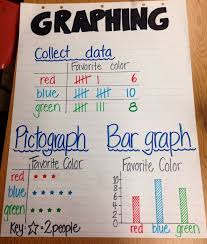 GRAPHING
Collect data
Favorite Color
red 6
blue 10
green 8
Pictograph
Favorite Color
red
blue
green
Key: ☆=2 people
Bar graph
Favorite Color
10
8
6
4
2
0
red
blue
green